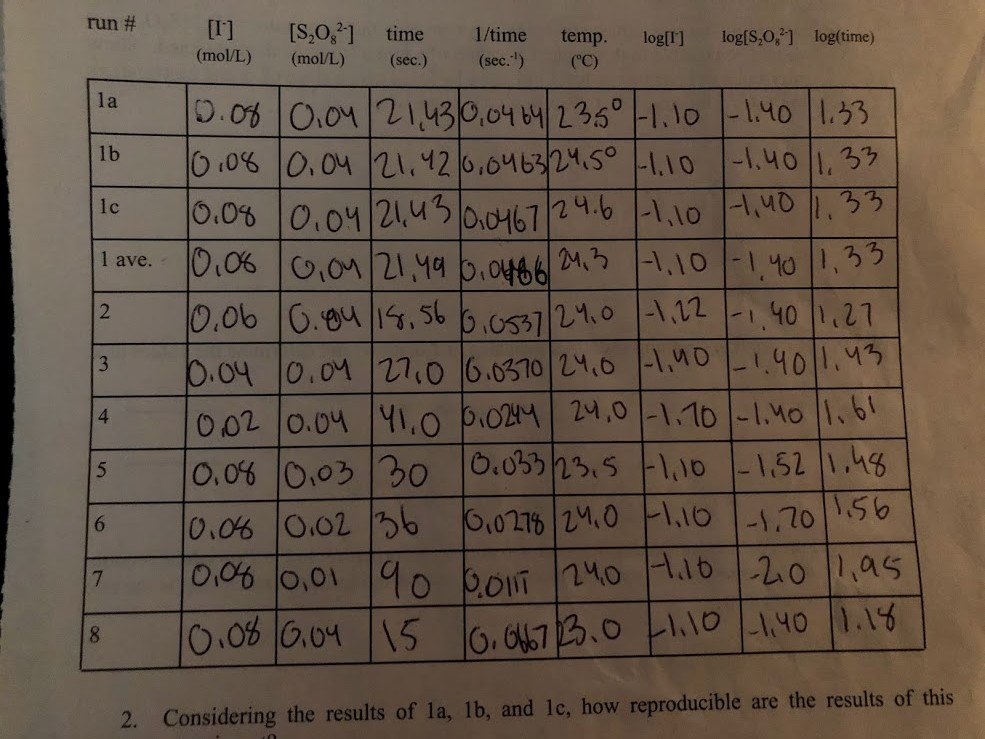 run # [I-] [S2O8 2-] time 1/time temp. log[I-] log[S2O8 2-] log(time)
(mol/L) (mol/L) (sec.) (sec.-1) (°C)
1a 0.08 0.04 21.43 0.0464 23.5° -1.10 -1.40 1.33
1b 0.08 0.04 21.42 0.0463 24.5° -1.10 -1.40 1.33
1c 0.08 0.04 21.43 0.0467 24.6 -1.10 -1.40 1.33
1 ave. 0.08 0.04 21.49 0.0466 24.3 -1.10 -1.40 1.33
2 0.06 0.04 18.56 0.0537 24.0 -1.22 -1.40 1.27
3 0.04 0.04 27.0 0.0370 24.0 -1.40 -1.40 1.43
4 0.02 0.04 41.0 0.0244 24.0 -1.70 -1.40 1.61
5 0.08 0.03 30 0.033 23.5 -1.10 -1.52 1.48
6 0.08 0.02 36 0.0278 24.0 -1.10 -1.70 1.56
7 0.08 0.01 90 0.0111 24.0 -1.10 -2.0 1.95
8 0.08 0.04 15 0.0667 23.0 -1.10 -1.40 1.18
2. Considering the results of 1a, 1b, and 1c, how reproducible are the results of this